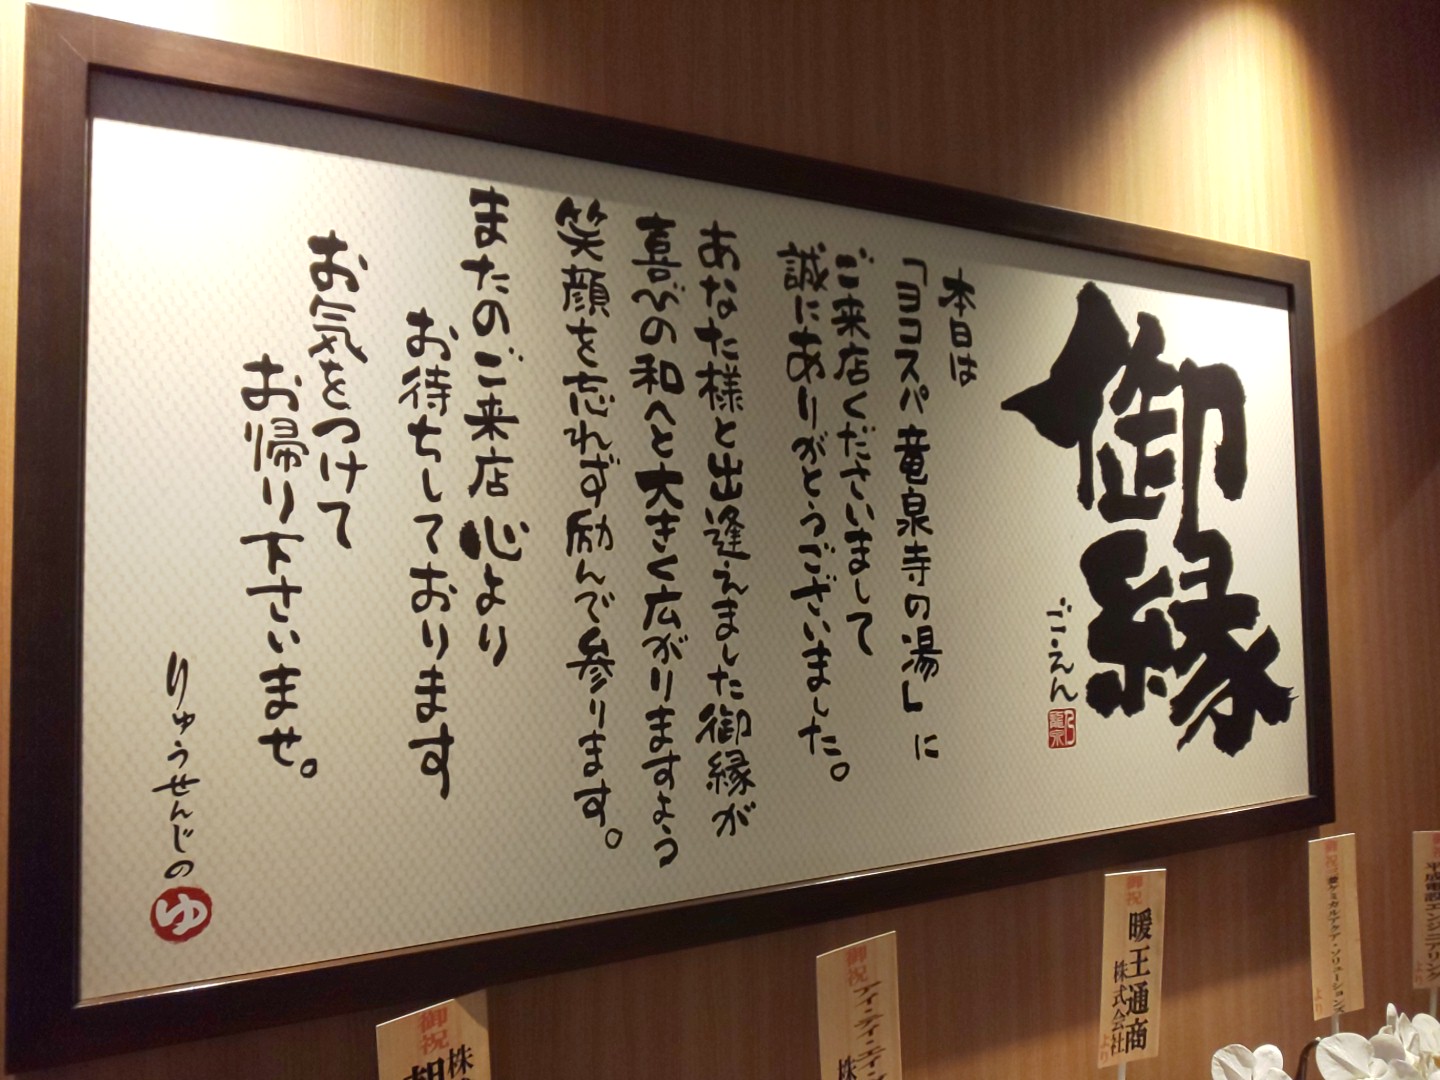 御縁
ご・えん
本日は
「ヨコスパ竜泉寺の湯」に
ご来店くださいまして
誠にありがとうございました。
あなた様と出逢えました御縁が
喜びの和へと大きく広がりますよう
笑顔を忘れず励んで参ります。
またのご来店心より
お待ちしております
お気をつけて
お帰り下さいませ。
りゅうせんじの
ゆ
御祝
株
御祝
アイ・ティ・エイン
株
御祝
暖王通商
株式会社
より
御祝
三菱ケミカルアクア・ソリューションズ
より
御祝
平成電設エンジニアリング
より